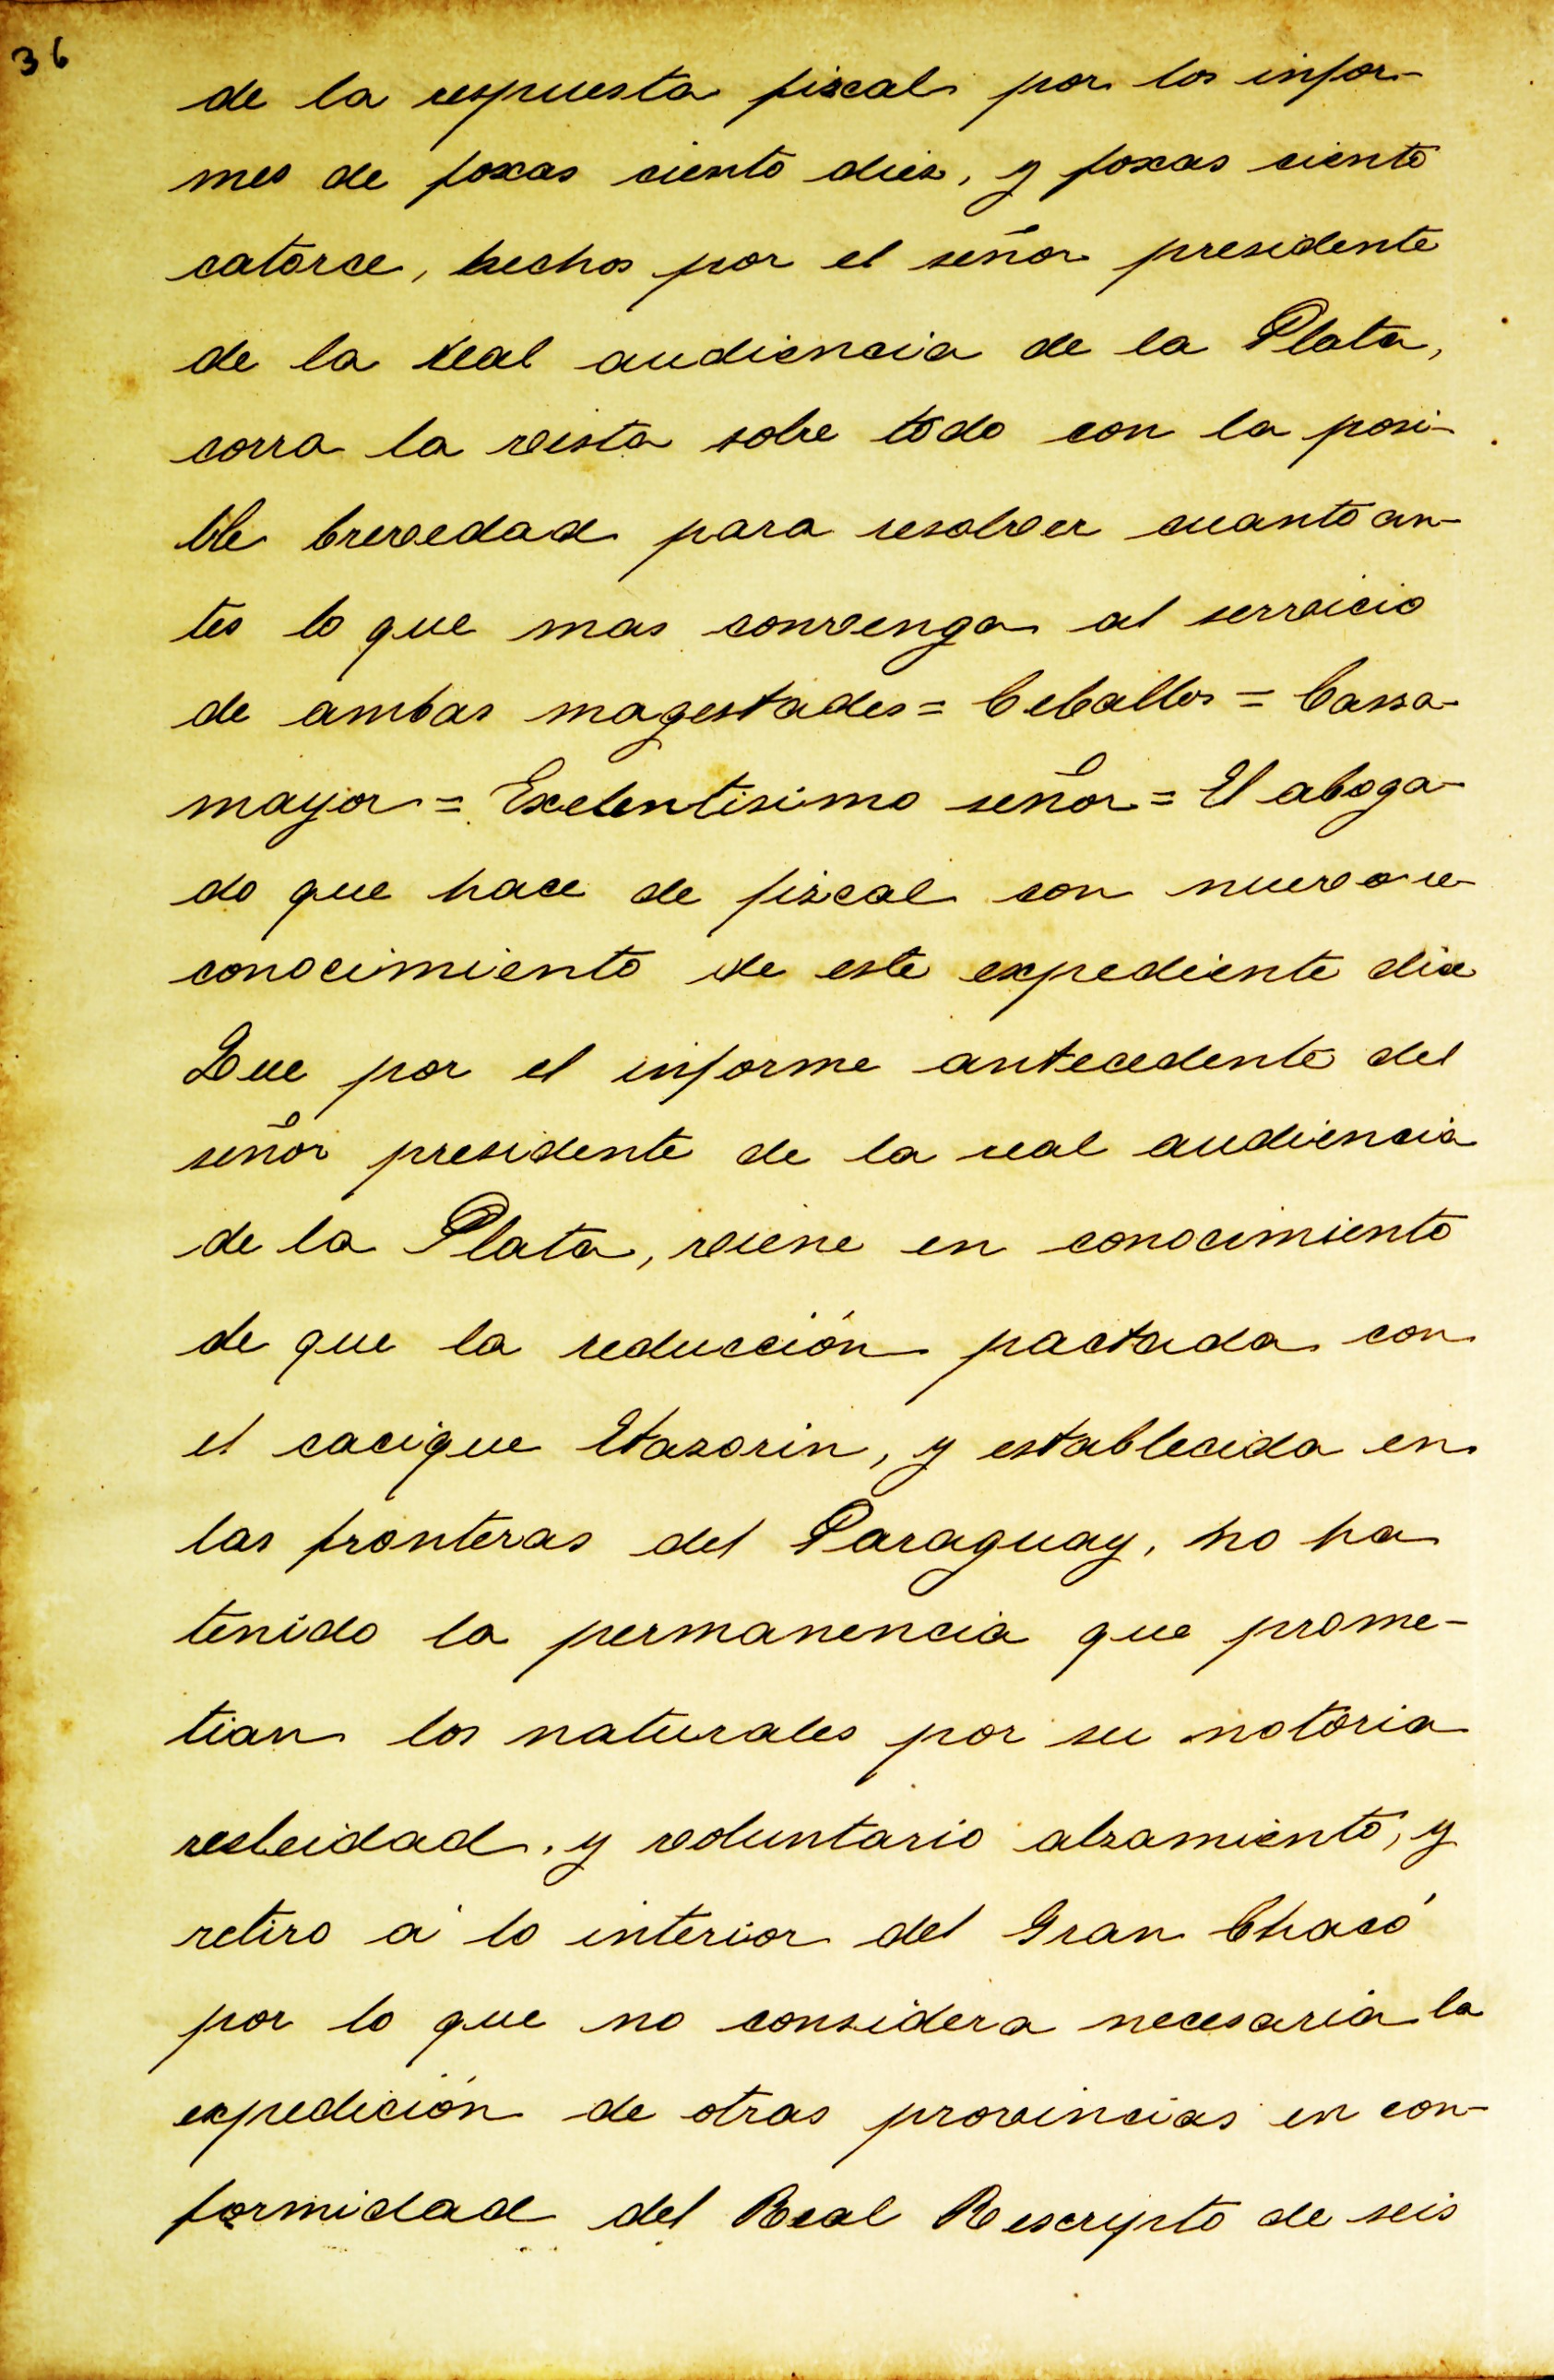 36
de la respuesta fiscal por los infor-
mes de foxas ciento diez, y foxas ciento
catorce, hechos por el señor presidente
de la real audiencia de la Plata,
corra la vista sobre todo con la posi-
ble brevedad para resolver cuanto an-
tes lo que mas convenga al servicio
de ambas magestades = Ceballos = Cassa-
mayor = Exelentisimo señor = El aboga-
do que hace de fiscal con nuevo re-
conocimiento de este expediente dice
Que por el informe antecedente del
señor presidente de la real audiencia
de la Plata, viene en conocimiento
de que la reducción pactada con
el cacique Etazorin, y establecida en
las fronteras del Paraguay, no ha
tenido la permanencia que prome-
tian los naturales por su notoria
y voluntario alzamiento, y
retiro á lo interior del Gran Chacó
por lo que no considera necesaria la
expedición de otras provincias en con-
formidad del Real Rescripto de seis